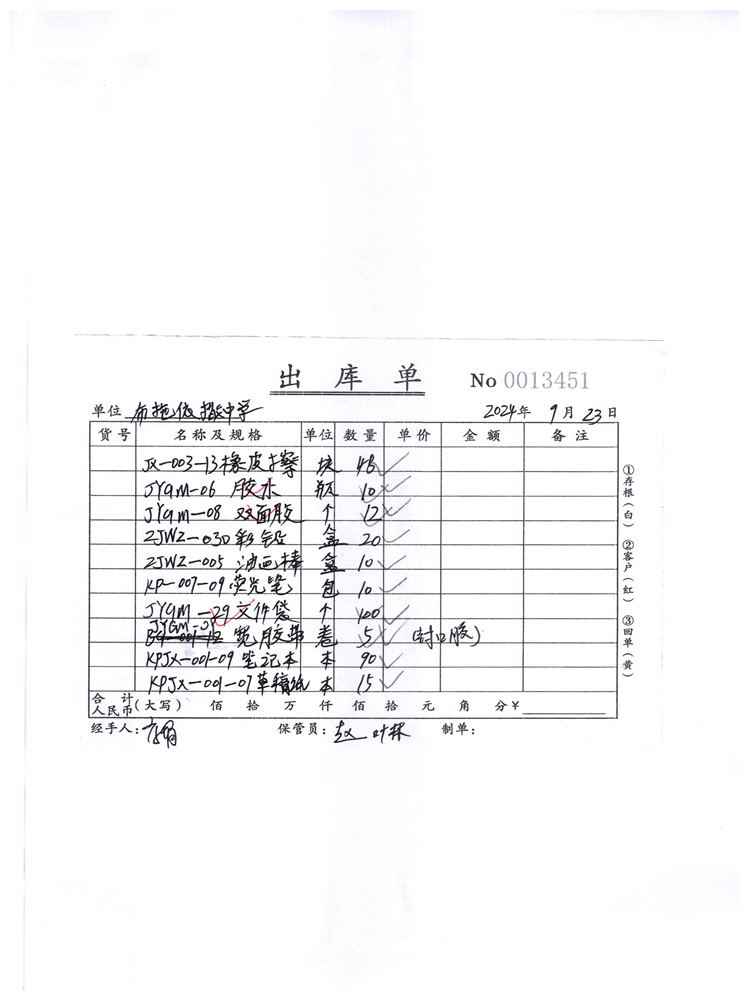 出 库 单
No 0013451
单位 布拖依撒中学 2024年 9月 23日
货号 名称及规格 单位 数量 单价 金额 备注
JX-003-13橡皮擦 块 48
JYGM-06 胶水 瓶 10
JYGM-08 双面胶 个 12
ZJWZ-030彩铅 盒 20
ZJWZ-005 油画棒 盒 10
KP-007-09荧光笔 包 10
JYGM-29文件袋 个 100
宽胶带 卷 5 (封口胶)
KPJX-001-09笔记本 本 90
KPJX-001-07草稿纸 本 15
合计人民币(大写) 佰 拾 万 仟 佰 拾 元 角 分¥
经手人: 保管员: 赵 叶林 制单:
①存根(白) ②客户(红) ③回单(黄)